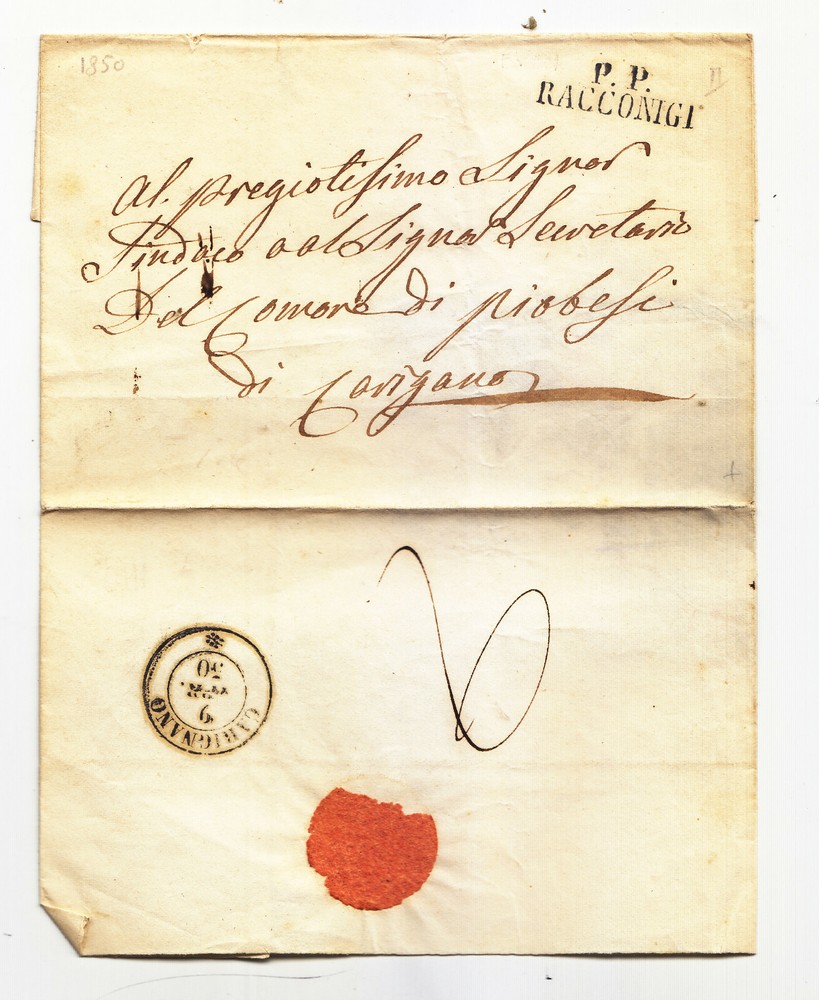 1850
P. P.
RACCONIGI
Al. pregiotisimo Signor
Sindaco o al Signor Secretario
Del Comone di piobesi
di Carigano
CARIGNANO
9
50